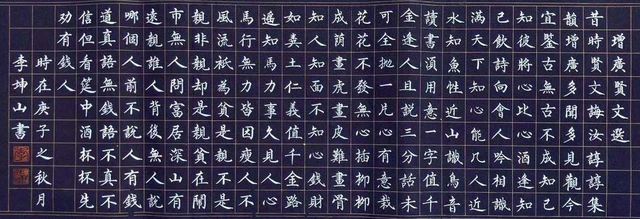 增廣賢文選
昔時賢文誨汝諄諄集
韻增廣多聞多見觀今
宜鑒古無古不成今知
己知彼將心比心酒逢知
己飲詩向會人吟相識
滿天下知心能几人近
水知魚性近山識鳥音
讀書須用意一字值千
金逢人且說三分話未
可全拋一片心有意栽
花花不發無心插柳柳
成蔭畫虎畫皮難畫骨
知人知面不知心錢財
如糞土仁義值千金路
遙知馬力事久見人心
馬行無力皆因瘦人不
風流衹為貧是親不是
親非親却是親貧居鬧
市無人問富居深山有
遠親誰人背後無人說
哪個人前不說人有錢
道真語無錢語不真不
信但看筵中酒杯杯先
劝有錢人
時在庚子之秋月
李坤山書